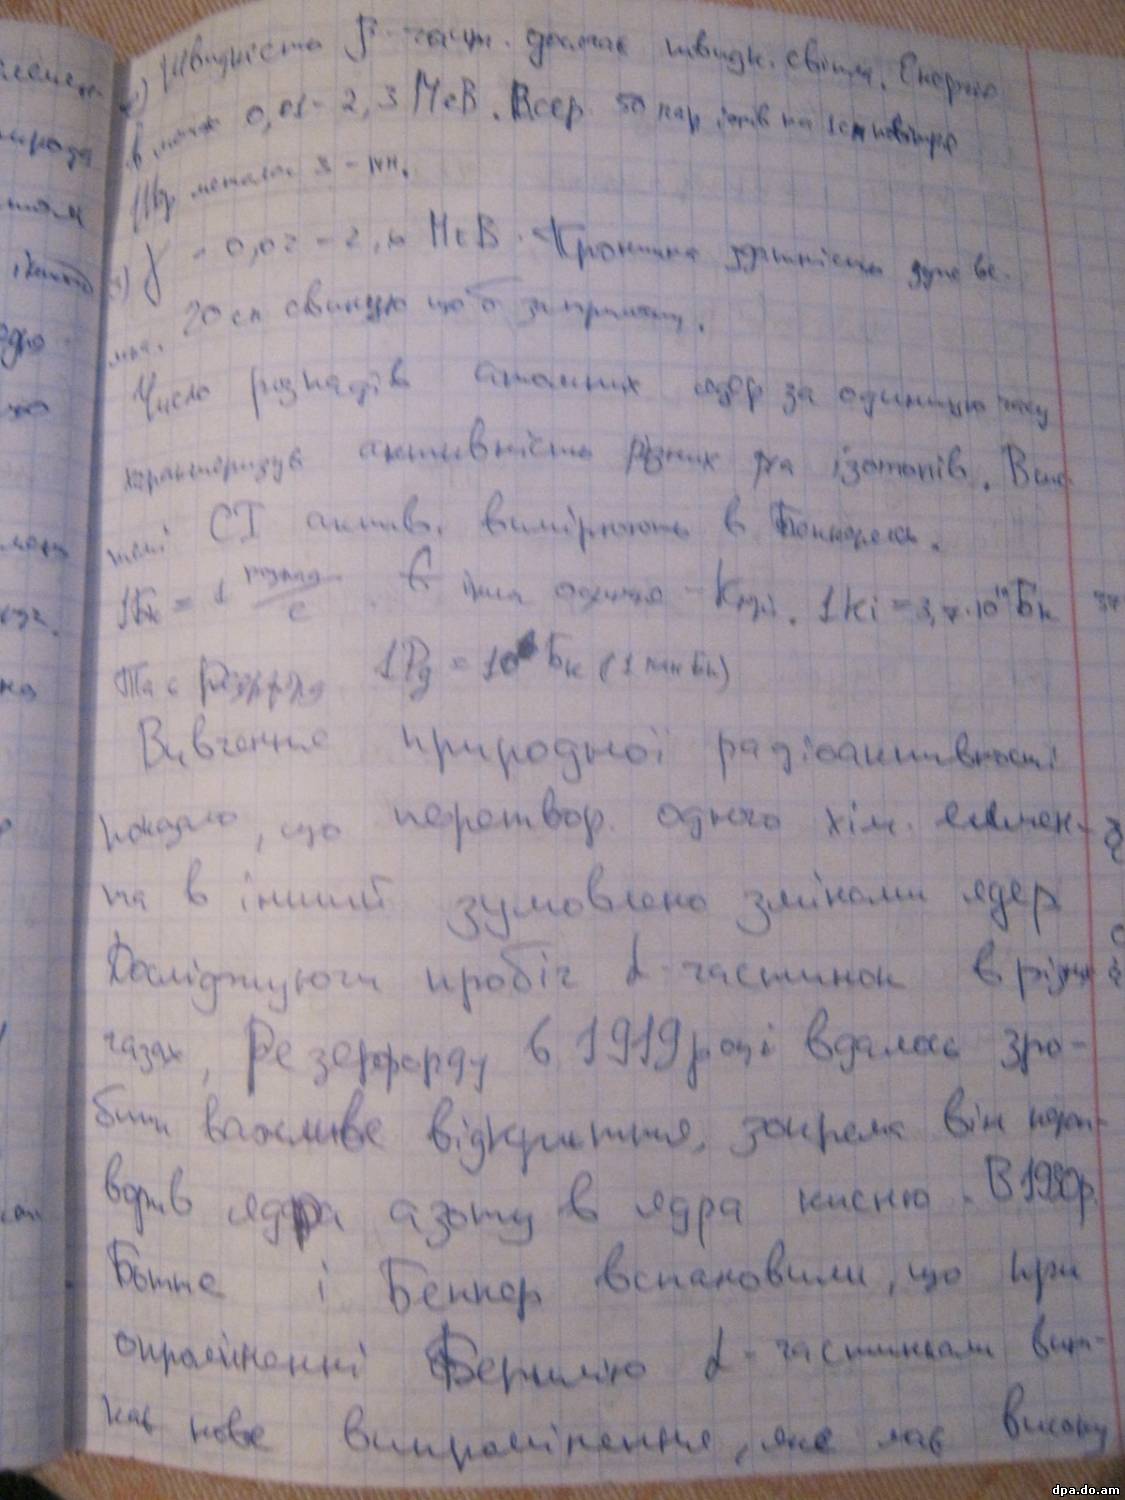 2) Швидкість β-част. досягає швидк. світла. Енергія
в межах 0,01-2,3 МеВ. Всер. 50 пар іонів на 1см повітря
Шар метала 3-мм.
3) γ - 0,02-2,6 МеВ. Проникна здатність дуже ве-
лика. 20 см свинцю щоб затримати.
Число розпадів атомних ядер за одиницю часу
характеризує активність різних ізотопів. В сис-
темі СІ актив. вимірюють в Беккерелях.
1Бк = 1 розпад/с. Є інша одиниця - Кюрі. 1Кі = 3,7·10¹⁰ Бк
Та є Резерфорд 1Рд = 10⁶ Бк (1 млн Бк)
Вивчення природної радіоактивності
показало, що перетвор. одного хім. елемен-
та в інший зумовлено змінами ядер
Досліджуючи пробіг α-частинок в різних
газах, Резерфорду в 1919 році вдалось зро-
бити важливе відкриття, зокрема він перет-
ворив ядра азоту в ядра кисню. В 1930р.
Ботте і Беккер встановили, що при
опроміненні Берилію α-частинками вини-
кає нове випромінення, яке має високу
dpa.do.am